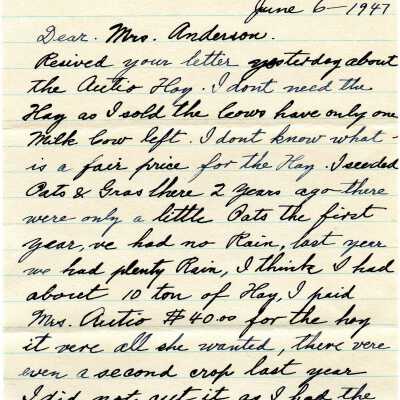 June 6 - 1947
Dear. Mrs. Anderson.
Resived your letter yesterday about
the Autio Hay. I dont need the
Hay as I sold the Cows have only one
Milk Cow left. I dont know what -
is a fair price for the Hay. I seeded
Oats & Gras there 2 years ago there
were only a little Oats the first
year, ve had no Rain, last year
we had plenty Rain, I think I had
about 10 ton of Hay, I paid
Mrs. Autio #40.00 for the hay
it vere all she wanted, there vere
even a second crop last year
I did not cut it as I had the